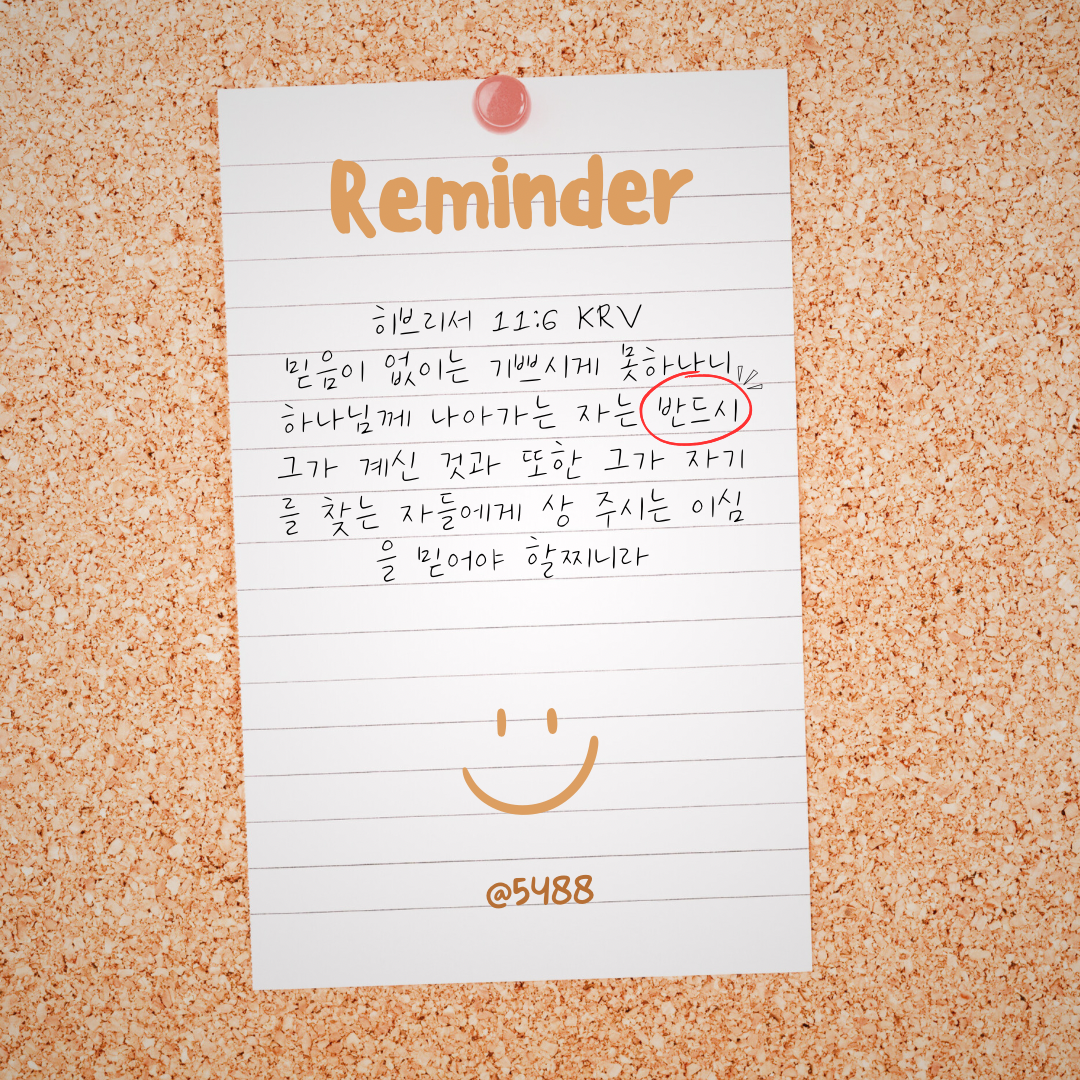 Reminder
히브리서 11:6 KRV
믿음이 없이는 기쁘시게 못하나니
하나님께 나아가는 자는 반드시
그가 계신 것과 또한 그가 자기
를 찾는 자들에게 상 주시는 이심
을 믿어야 할찌니라
@5488